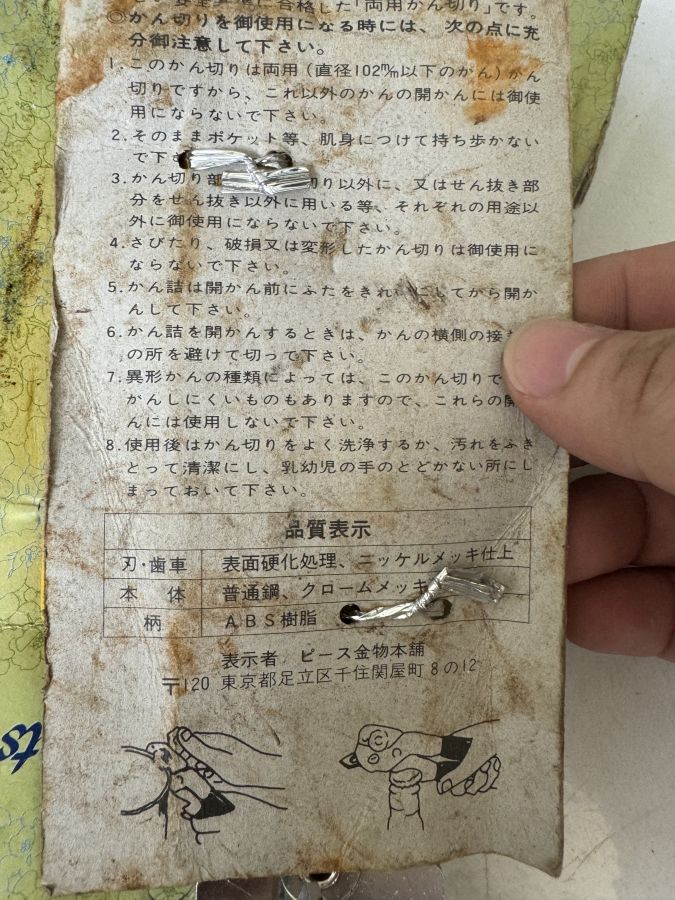 に合格した「両用かん切り」です。
◎かん切りを御使用になる時には、次の点に充
分御注意して下さい。
1. このかん切りは両用(直径102m/m以下のかん)かん
切りですから、これ以外のかんの開かんには御使
用にならないで下さい。
2. そのままポケット等、肌身につけて持ち歩かない
で下
3. かん切り部 切り以外に、又はせん抜き部
分をせん抜き以外に用いる等、それぞれの用途以
外に御使用にならないで下さい。
4. さびたり、破損又は変形したかん切りは御使用に
ならないで下さい。
5. かん詰は開かん前にふたをきれ にしてから開か
んして下さい。
6. かん詰を開かんするときは、かんの横側の接
の所を避けて切って下さい。
7. 異形かんの種類によっては、このかん切りで
かんしにくいものもありますので、これらの開
んには使用しないで下さい。
8. 使用後はかん切りをよく洗浄するか、汚れをふき
とって清潔にし、乳幼児の手のとどかない所にし
まっておいて下さい。
品質表示
刃・歯車 表面硬化処理、ニッケルメッキ仕上
本体 普通鋼、クロームメッキ
柄 ABS樹脂
表示者 ピース金物本舗
〒120 東京都足立区千住関屋町8の12
ts